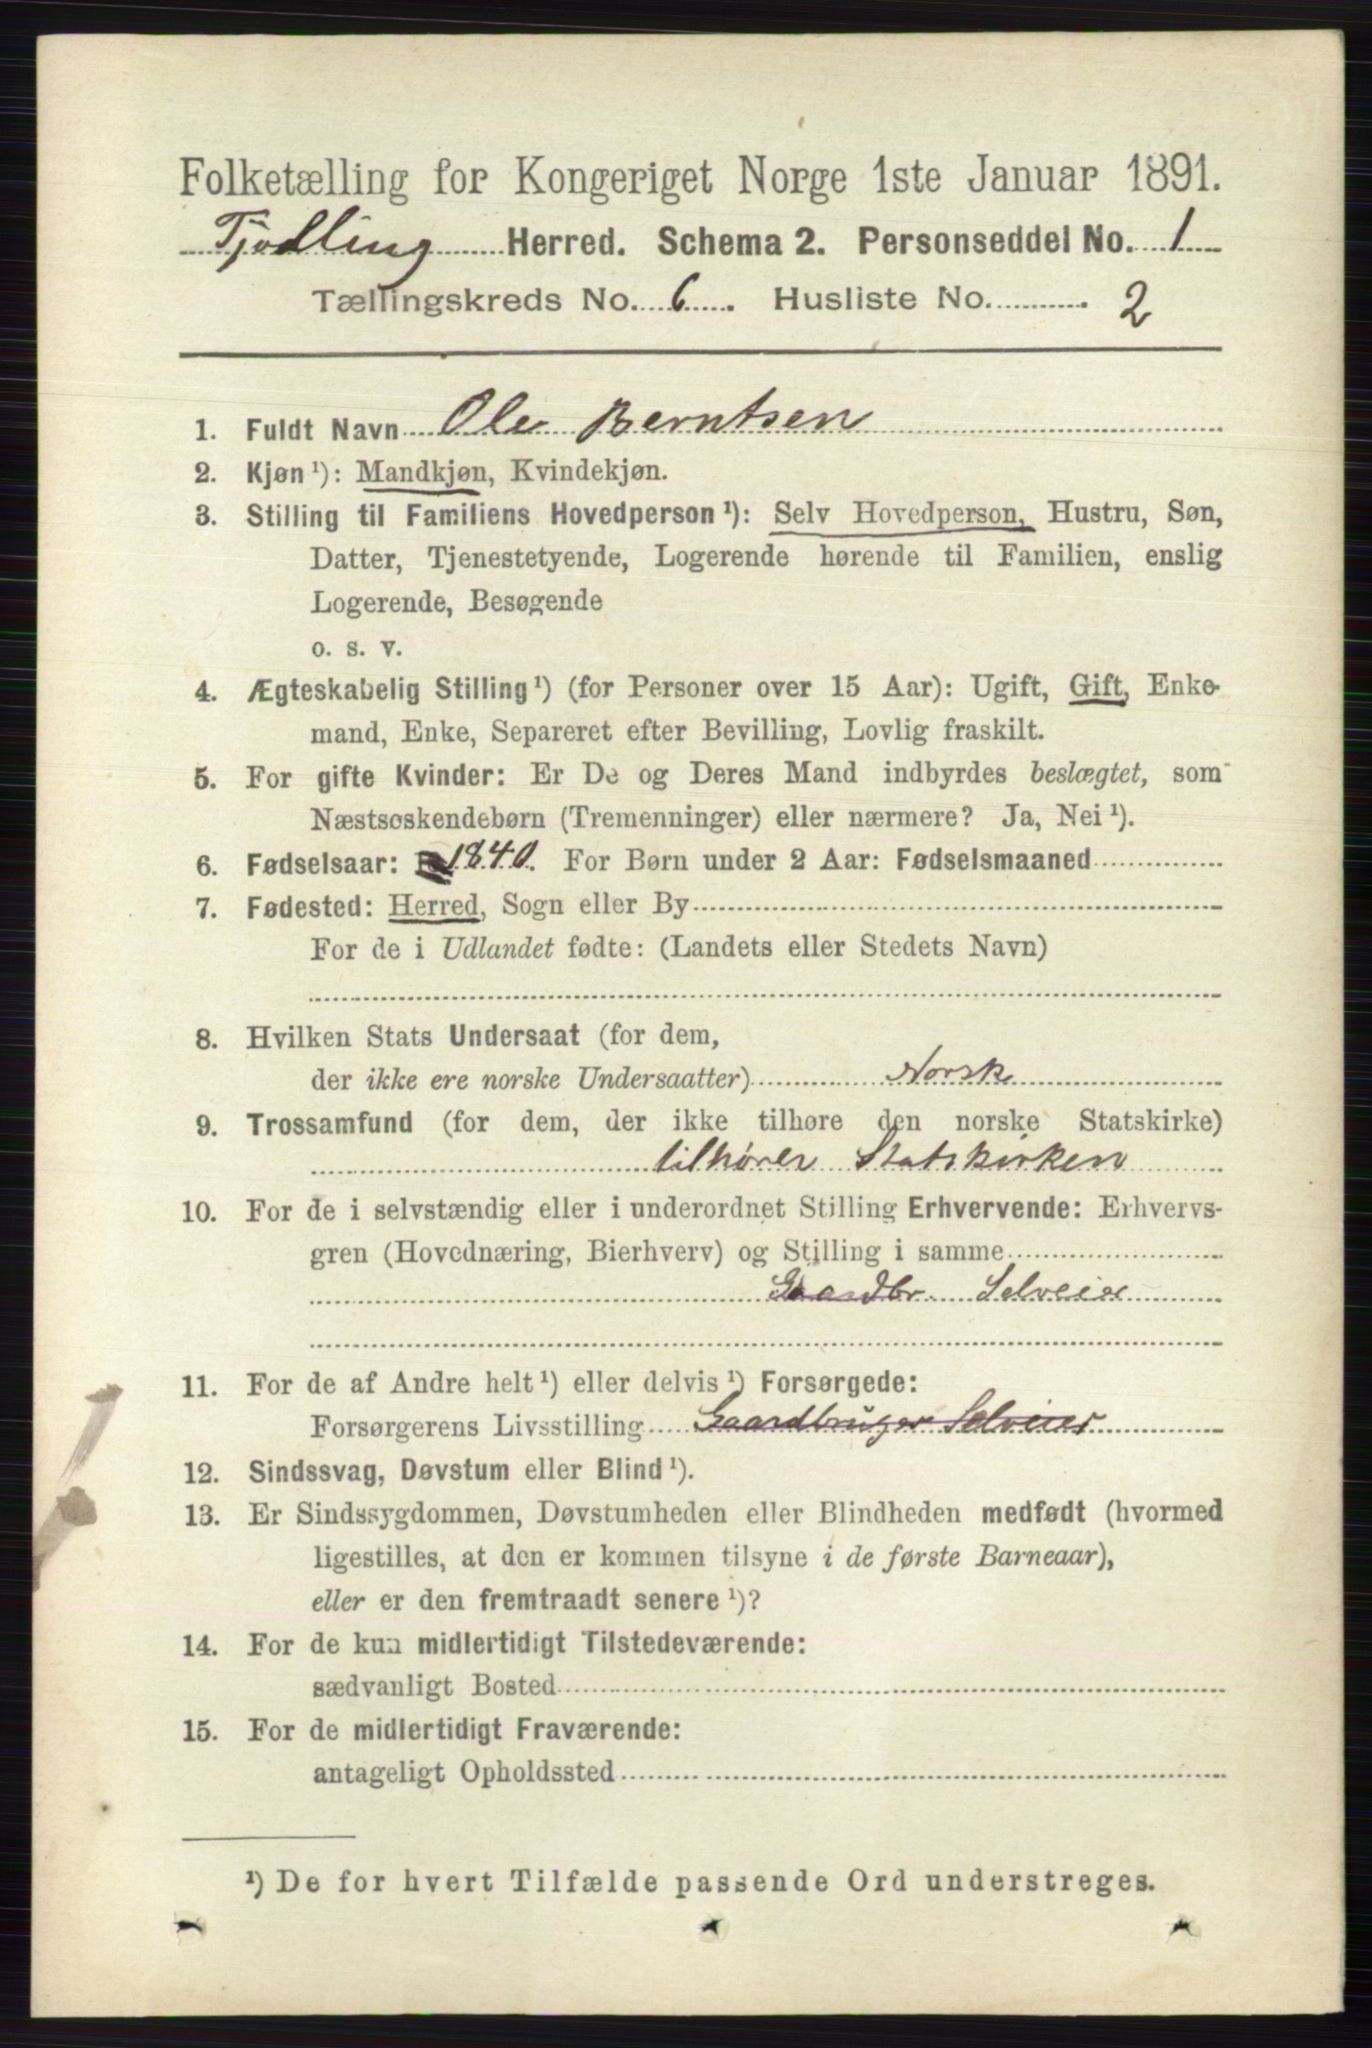 Folketælling for Kongeriget Norge 1ste Januar 1891.
Tjødling Herred. Schema 2. Personseddel No. 1
Tællingskreds No. 6. Husliste No. 2
1. Fuldt Navn Ole Berntsen
2. Kjøn ¹): Mandkjøn, Kvindekjøn.
3. Stilling til Familiens Hovedperson ¹): Selv Hovedperson, Hustru, Søn,
Datter, Tjenestetyende, Logerende hørende til Familien, enslig
Logerende, Besøgende
o. s. v.
4. Ægteskabelig Stilling ¹) (for Personer over 15 Aar): Ugift, Gift, Enke-
mand, Enke, Separeret efter Bevilling, Lovlig fraskilt.
5. For gifte Kvinder: Er De og Deres Mand indbyrdes beslægtet, som
Næstsøskendebørn (Tremenninger) eller nærmere? Ja, Nei ¹).
6. Fødselsaar: 1840. For Børn under 2 Aar: Fødselsmaaned
7. Fødested: Herred, Sogn eller By
For de i Udlandet fødte: (Landets eller Stedets Navn)
8. Hvilken Stats Undersaat (for dem,
der ikke ere norske Undersaatter) Norsk
9. Trossamfund (for dem, der ikke tilhøre den norske Statskirke)
tilhører Statskirken
10. For de i selvstændig eller i underordnet Stilling Erhvervende: Erhvervs-
gren (Hovednæring, Bierhverv) og Stilling i samme
Gaardbr. Selveier
11. For de af Andre helt ¹) eller delvis ¹) Forsørgede:
Forsørgerens Livsstilling Gaardbruger Selveier
12. Sindssvag, Døvstum eller Blind ¹).
13. Er Sindssygdommen, Døvstumheden eller Blindheden medfødt (hvormed
ligestilles, at den er kommen tilsyne i de første Barneaar),
eller er den fremtraadt senere ¹)?
14. For de kun midlertidigt Tilstedeværende:
sædvanligt Bosted
15. For de midlertidigt Fraværende:
antageligt Opholdssted
¹) De for hvert Tilfælde passende Ord understreges.